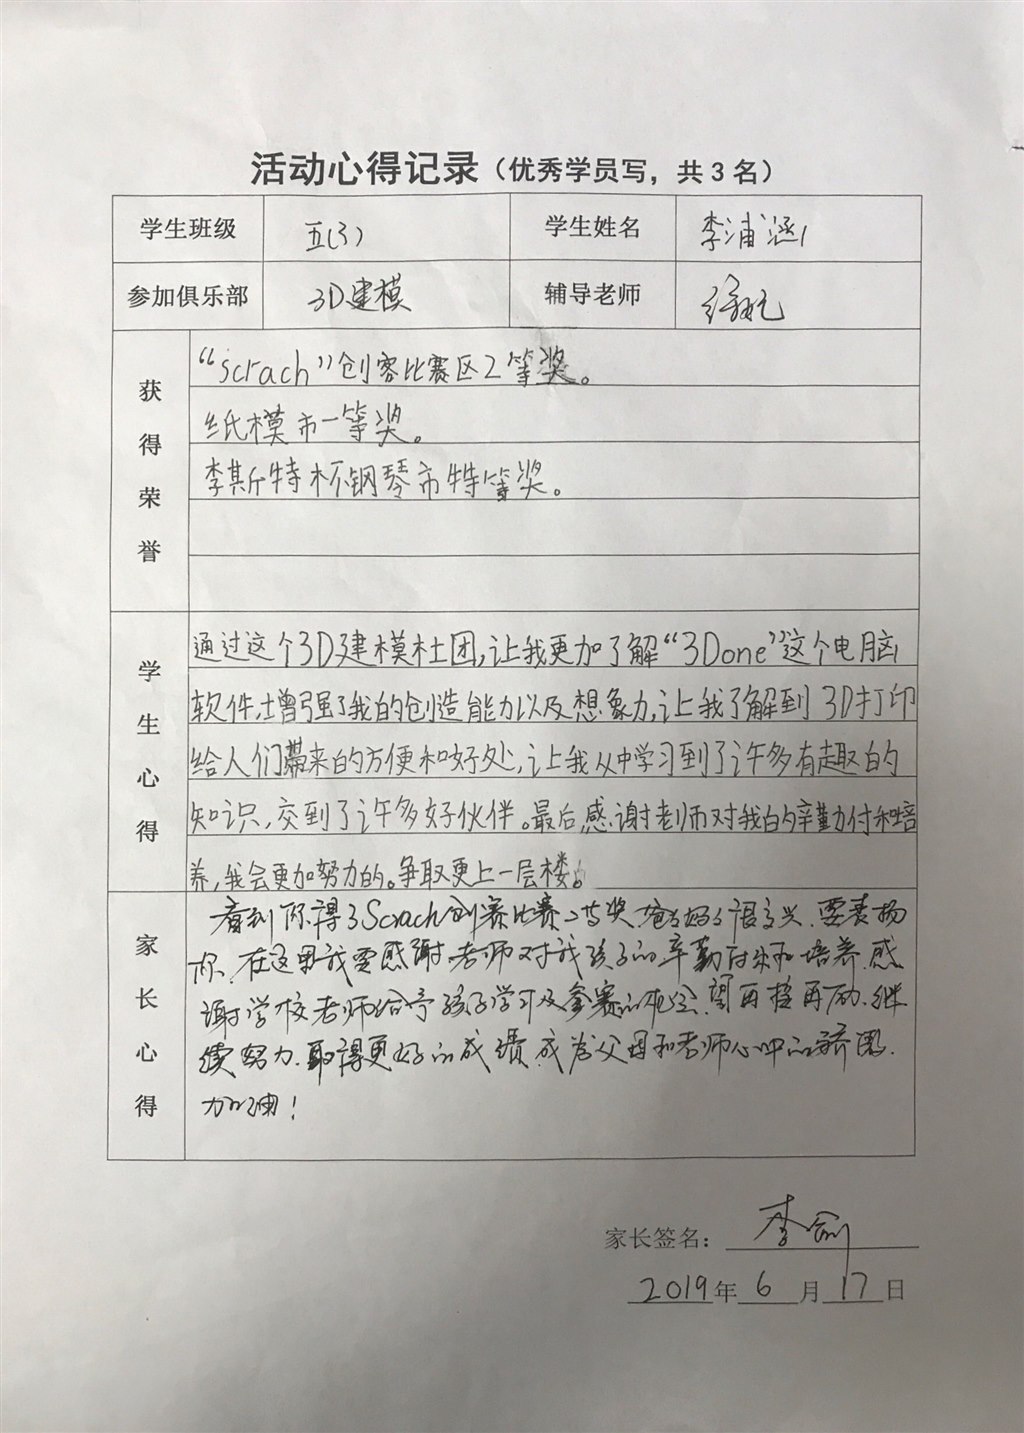 活动心得记录（优秀学员写，共3名）
学生班级 五(3) 学生姓名 李浦涵
参加俱乐部 3D建模 辅导老师
获得荣誉
“scrach”创客比赛区2等奖。
纸模市一等奖。
李斯特杯钢琴市特等奖。
学生心得
通过这个3D建模社团,让我更加了解“3Done”这个电脑
软件,增强了我的创造能力以及想象力,让我了解到3D打印
给人们带来的方便和好处,让我从中学习到了许多有趣的
知识,交到了许多好伙伴。最后,感谢老师对我的辛勤付和培
养,我会更加努力的。争取更上一层楼。
家长心得
看到你得了Scrach创赛比赛二等奖,爸爸妈妈很高兴.要表扬
你.在这里我要感谢老师对我孩子的辛勤付出和培养.感
谢学校老师给予孩子学习及参赛的机会.望再接再励.继
续努力.取得更好的成绩.成为父母和老师心中的骄傲.
加油!
家长签名：李剑
2019年6月17日